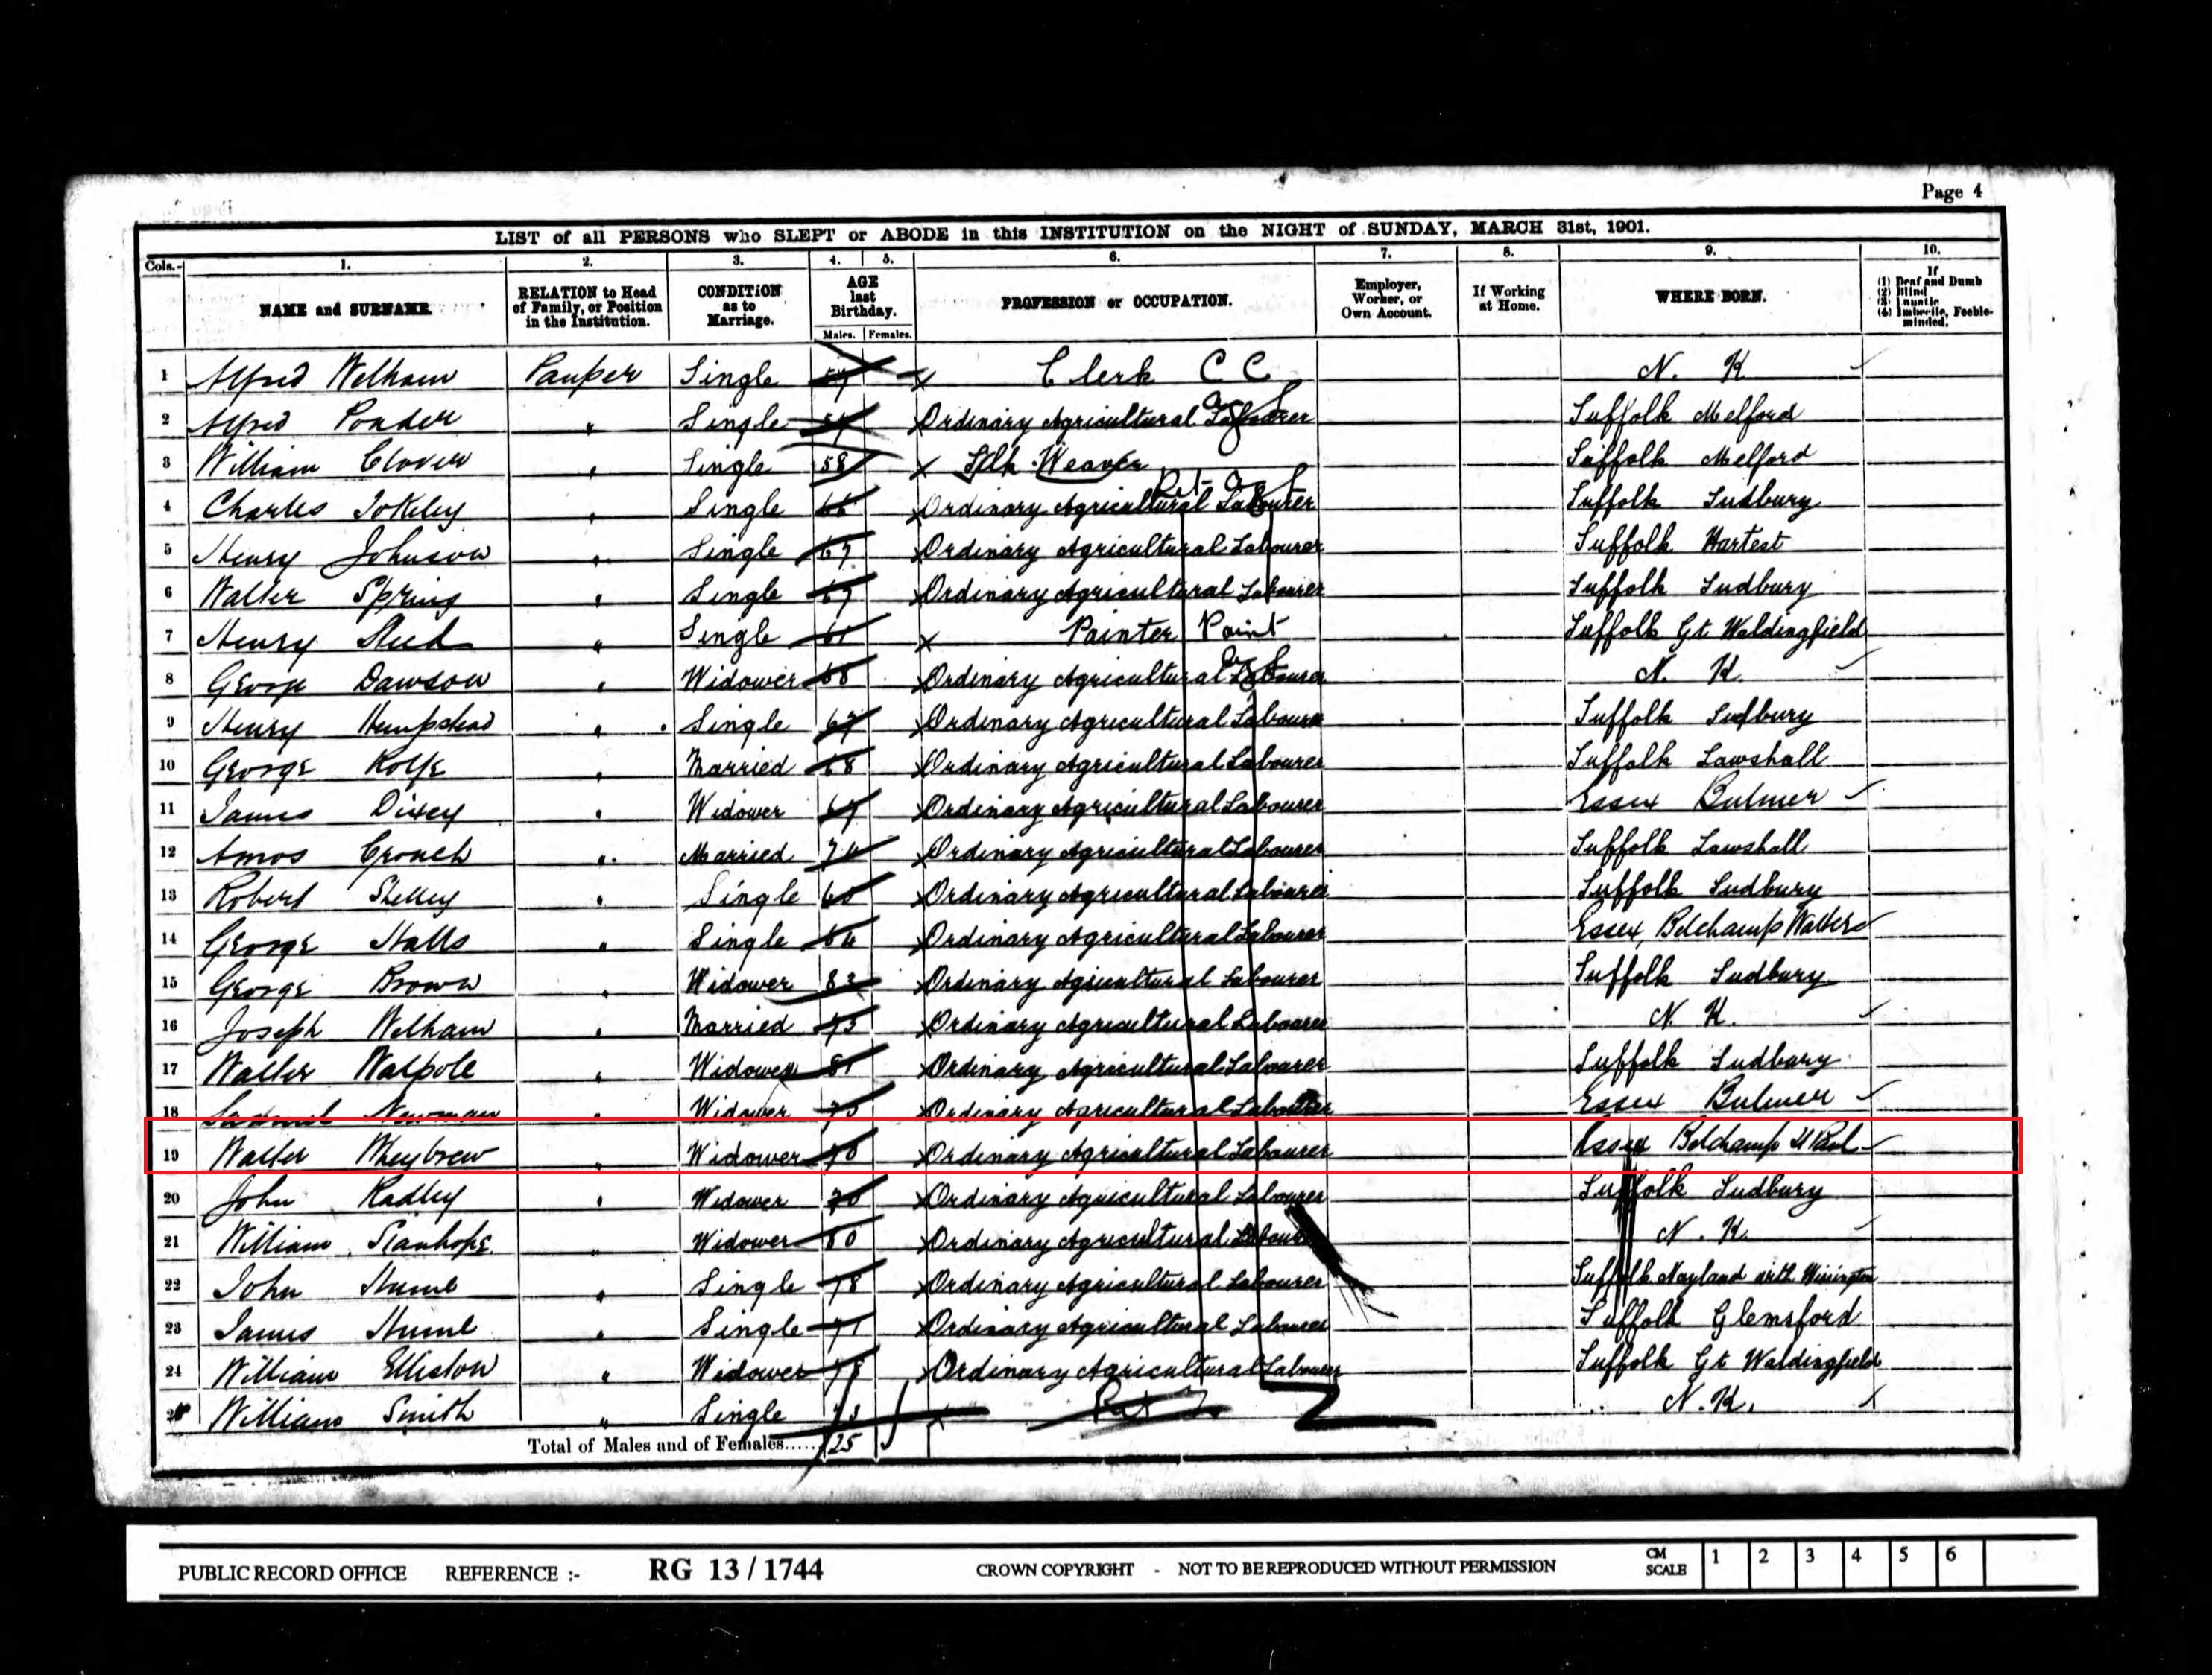 Page 4
LIST of all PERSONS who SLEPT or ABODE in this INSTITUTION on the NIGHT of SUNDAY, MARCH 31st, 1901.
Cols.- 1. 2. 3. 4. 5. 6. 7. 8. 9. 10.
NAME and SURNAME. RELATION to Head of Family, or Position in the Institution. CONDITION as to Marriage. AGE last Birthday. Males. Females. PROFESSION or OCCUPATION. Employer, Worker, or Own Account. If Working at Home. WHERE BORN. If (1) Deaf and Dumb (2) Blind (3) Lunatic (4) Imbecile, Feeble-minded.
1 Alfred Welham Pauper Single x Clerk C C N. K
2 Alfred Ponder " Single x Ordinary Agricultural Labourer Suffolk Melford
3 William Clover " Single 58 x Silk Weaver Suffolk Melford
4 Charles Jokeley " Single 66 x Ordinary Agricultural Labourer Suffolk Sudbury
5 Henry Johnson " Single 67 x Ordinary Agricultural Labourer Suffolk Hartest
6 Walter Spring " Single x Ordinary Agricultural Labourer Suffolk Sudbury
7 Henry Steed " Single 61 x Painter Paint Suffolk Gt Waldingfield
8 George Dawson " Widower 68 x Ordinary Agricultural Labourer N. K.
9 Henry Hempstead " Single 67 x Ordinary Agricultural Labourer Suffolk Sudbury
10 George Rolfe " Married 68 x Ordinary Agricultural Labourer Suffolk Lawshall
11 James Dixey " Widower x Ordinary Agricultural Labourer Essex Bulmer
12 Amos Crouch " Married x Ordinary Agricultural Labourer Suffolk Lawshall
13 Robert Shelley " Single x Ordinary Agricultural Labourer Suffolk Sudbury
14 George Halls " Single 64 x Ordinary Agricultural Labourer Essex, Belchamp Walter
15 George Brown " Widower x Ordinary Agricultural Labourer Suffolk Sudbury
16 Joseph Welham " Married x Ordinary Agricultural Labourer N. K.
17 Walter Walpole " Widower 81 x Ordinary Agricultural Labourer Suffolk Sudbury
18 Samuel Newman " Widower 75 x Ordinary Agricultural Labourer Essex Bulmer
19 Walter Wheybrew " Widower x Ordinary Agricultural Labourer Essex Belchamp St Paul
20 John Radley " Widower x Ordinary Agricultural Labourer Suffolk Sudbury
21 William Stanhope " Widower 80 x Ordinary Agricultural Labourer N. K.
22 John Hume " Single 78 x Ordinary Agricultural Labourer Suffolk Nayland with Wissington
23 James Hume " Single 71 x Ordinary Agricultural Labourer Suffolk Glemsford
24 William Elliston " Widower 78 x Ordinary Agricultural Labourer Suffolk Gt Waldingfield
William Smith " Single x N. K.
Total of Males and of Females..... 25
PUBLIC RECORD OFFICE REFERENCE :- RG 13 / 1744 CROWN COPYRIGHT - NOT TO BE REPRODUCED WITHOUT PERMISSION CM SCALE 1 2 3 4 5 6